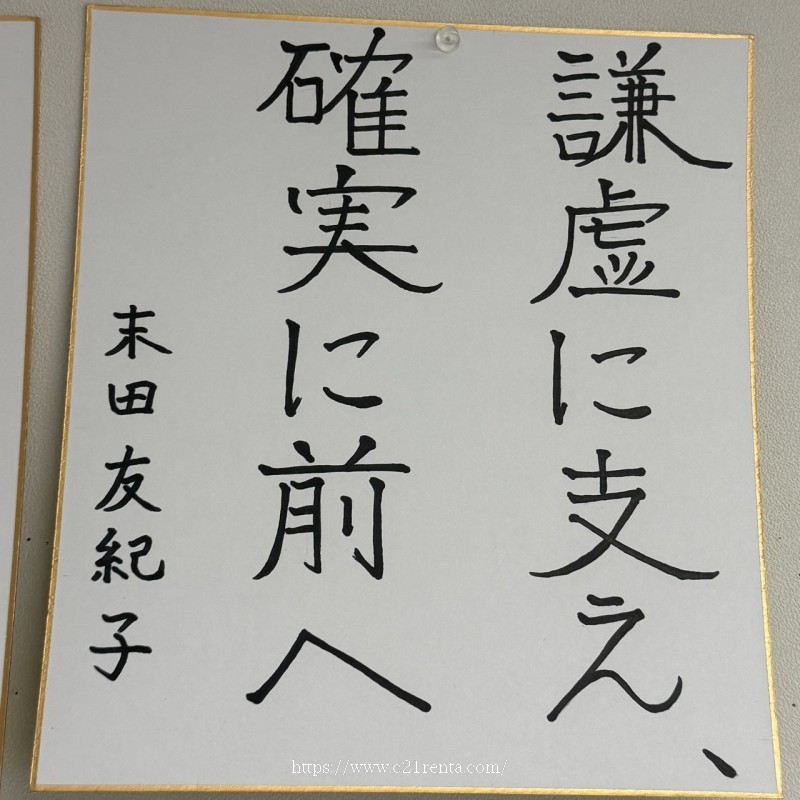 謙虚に支え、
確実に前へ
末田友紀子
https://www.c21renta.com/